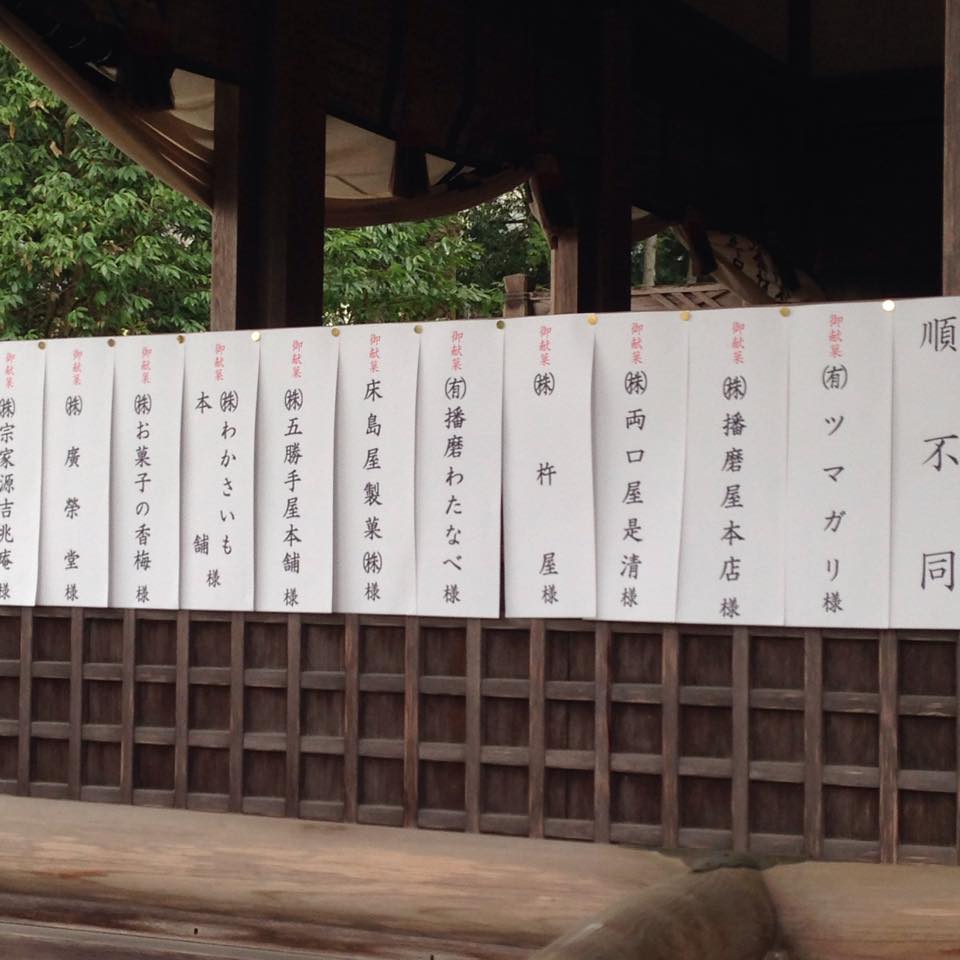 順不同
御献菓
㈲ツマガリ様
御献菓
㈱播磨屋本店様
御献菓
㈱両口屋是清様
御献菓
㈱杵屋様
御献菓
㈲播磨わたなべ様
御献菓
床島屋製菓㈱様
御献菓
㈱五勝手屋本舗様
御献菓
㈱わかさいも
本舗様
御献菓
㈱お菓子の香梅様
御献菓
㈱廣榮堂様
御献菓
㈱宗家源吉兆庵様